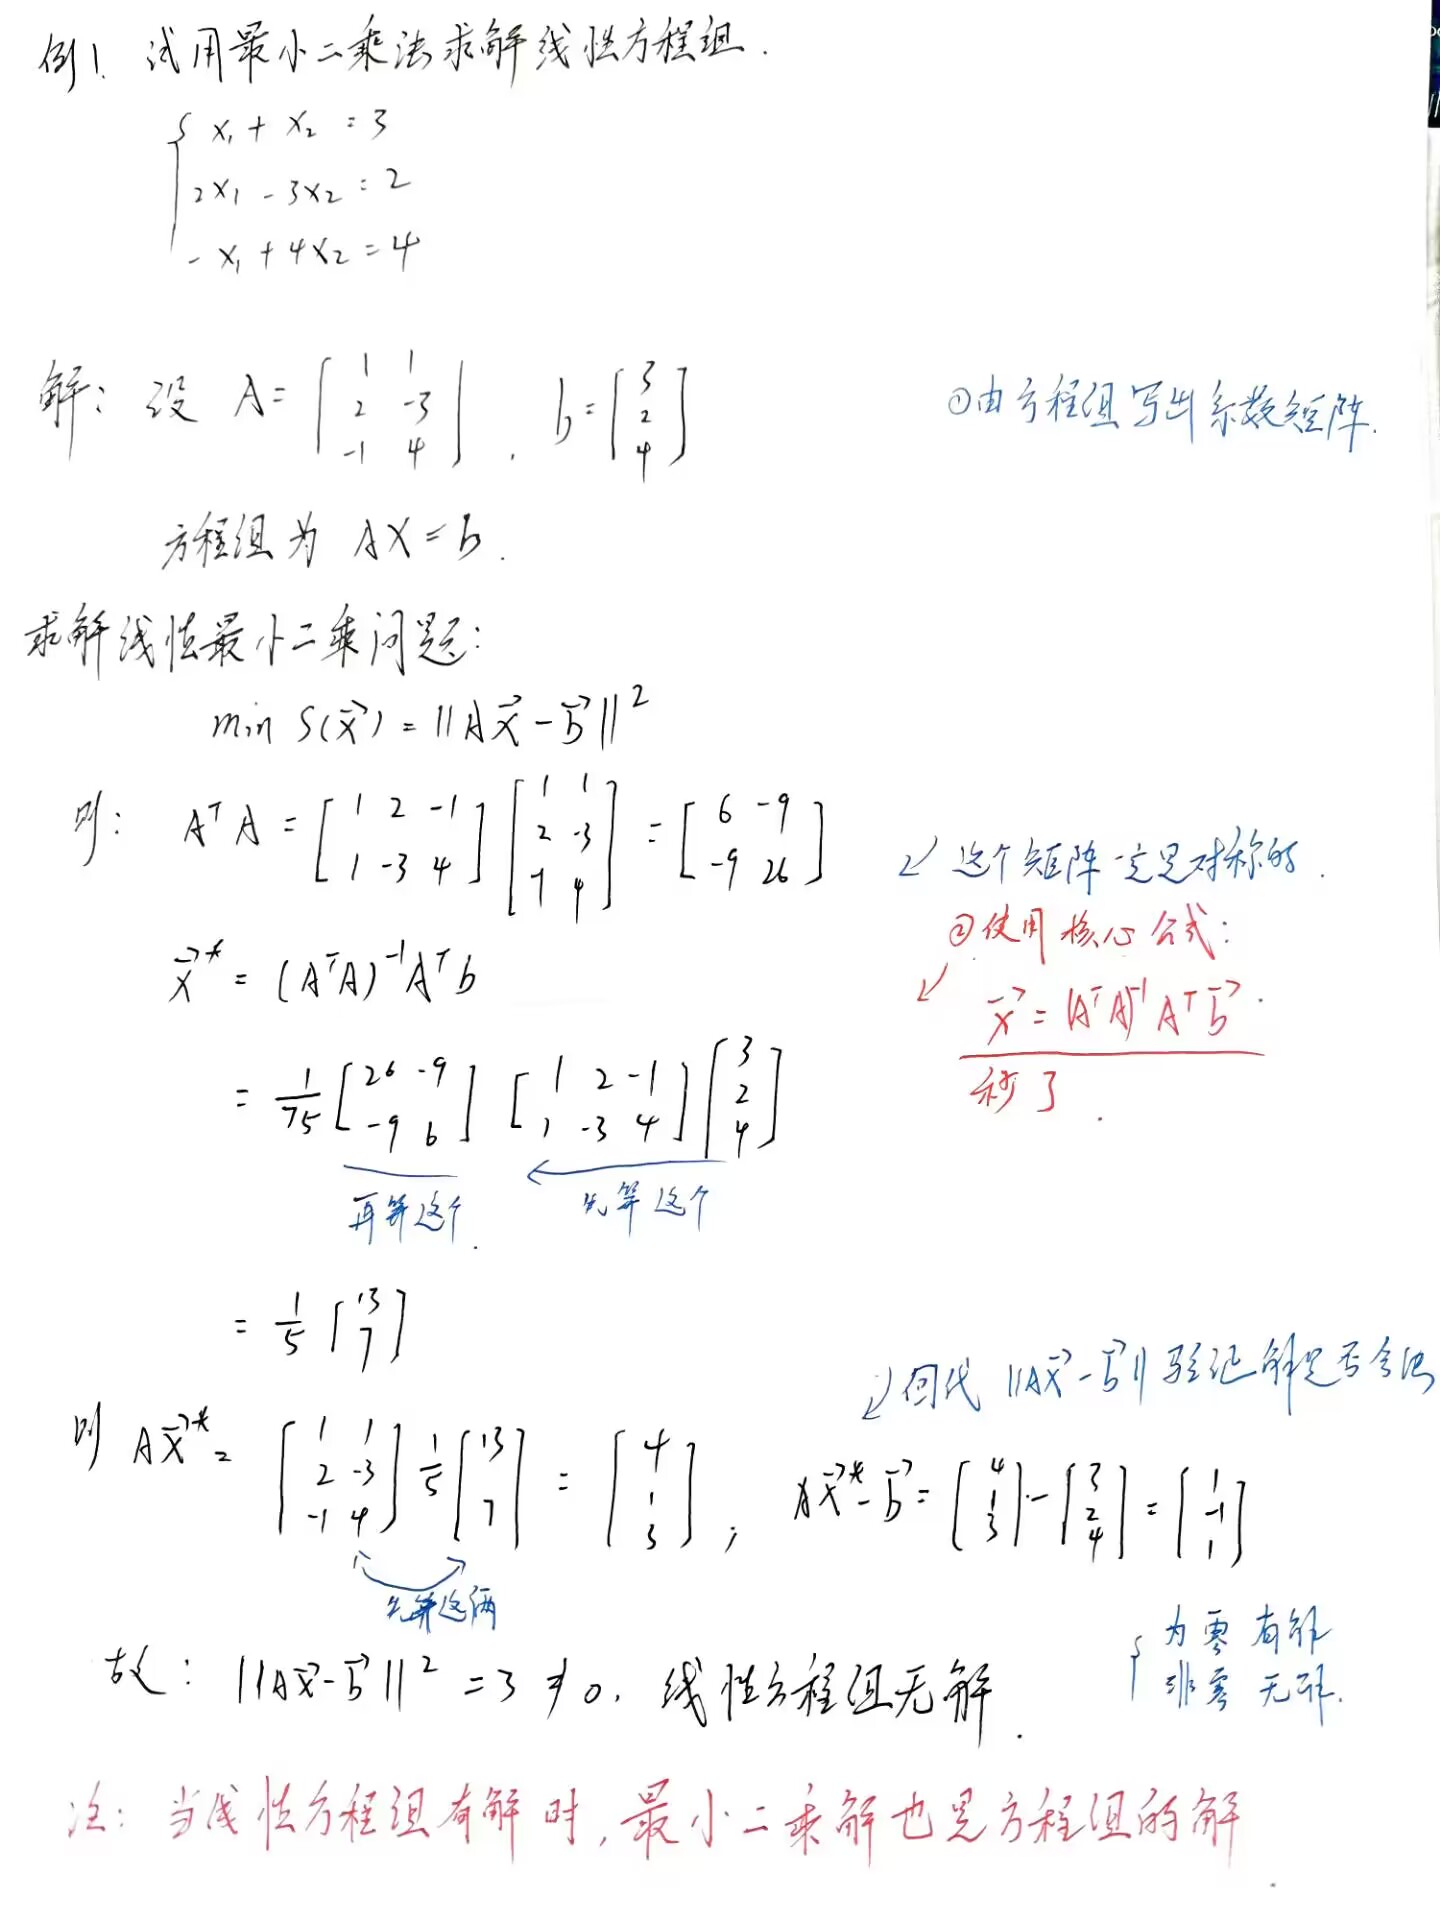 例1. 试用最小二乘法求解线性方程组.
x₁ + x₂ = 3
2x₁ - 3x₂ = 2
-x₁ + 4x₂ = 4
解: 设 A = [1 1; 2 -3; -1 4], b = [3; 2; 4]
①由方程组写出系数矩阵.
方程组为 AX = b.
求解线性最小二乘问题:
min S(x⃗) = ||Ax⃗ - b⃗||²
则: AᵀA = [1 2 -1; 1 -3 4] [1 1; 2 -3; -1 4] = [6 -9; -9 26]
↙ 这个矩阵一定是对称的.
x⃗* = (AᵀA)⁻¹Aᵀb
②使用核心公式:
↙ x⃗ = (AᵀA)⁻¹Aᵀb⃗.
秒了.
= 1/75 [26 -9; -9 6] [1 2 -1; 1 -3 4] [3; 2; 4]
再算这个. 先算这个
= 1/5 [13; 7]
↙回代 ||Ax⃗ - b⃗|| 验证解是否合法
则 Ax⃗* = [1 1; 2 -3; -1 4] 1/5 [13; 7] = [4; 1; 3]; Ax⃗* - b⃗ = [4; 1; 3] - [3; 2; 4] = [1; -1; 1]
先算这俩
为零 有解
非零 无解.
故: ||Ax⃗ - b⃗||² = 3 ≠ 0. 线性方程组无解.
注: 当线性方程组有解时, 最小二乘解也是方程组的解.